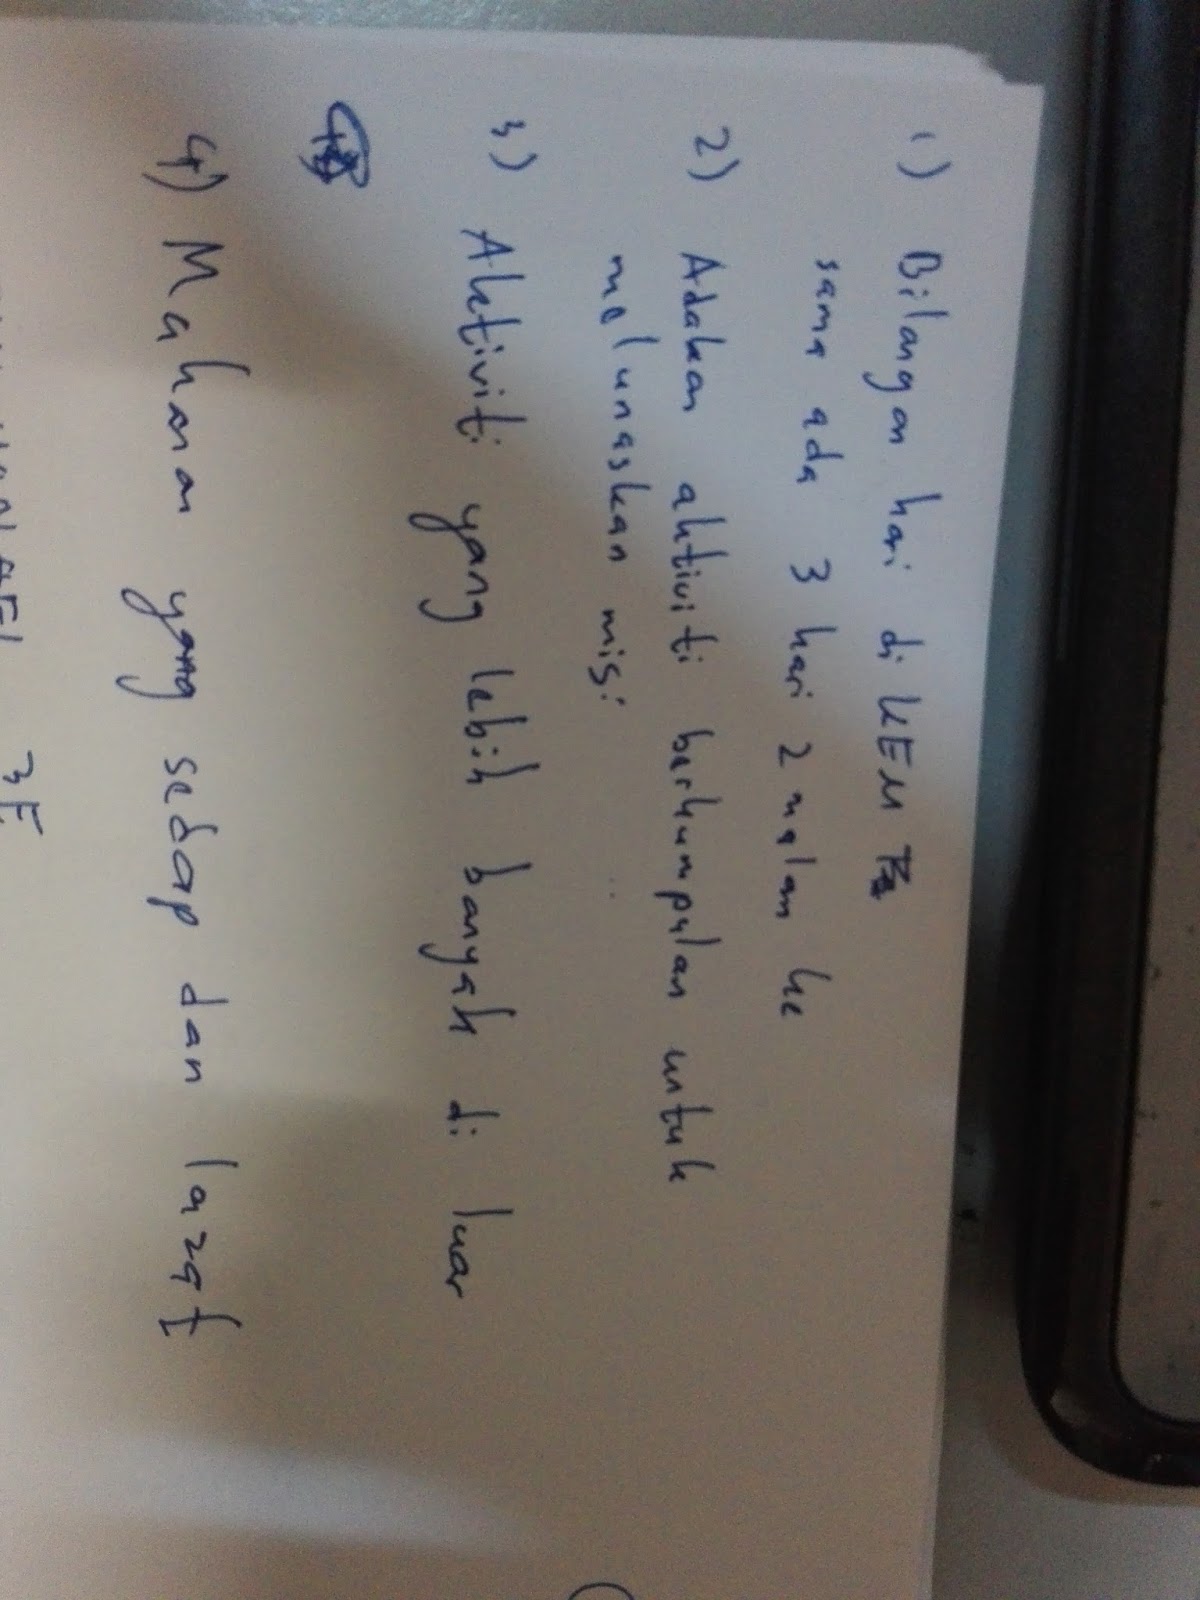 1) Bilangan hari di KEM
sama ada 3 hari 2 malam ke
2) Adakan aktiviti berkumpulan untuk
melunaskan misi
3) Aktiviti yang lebih banyak di luar
4) Makanan yang sedap dan lazat
3E